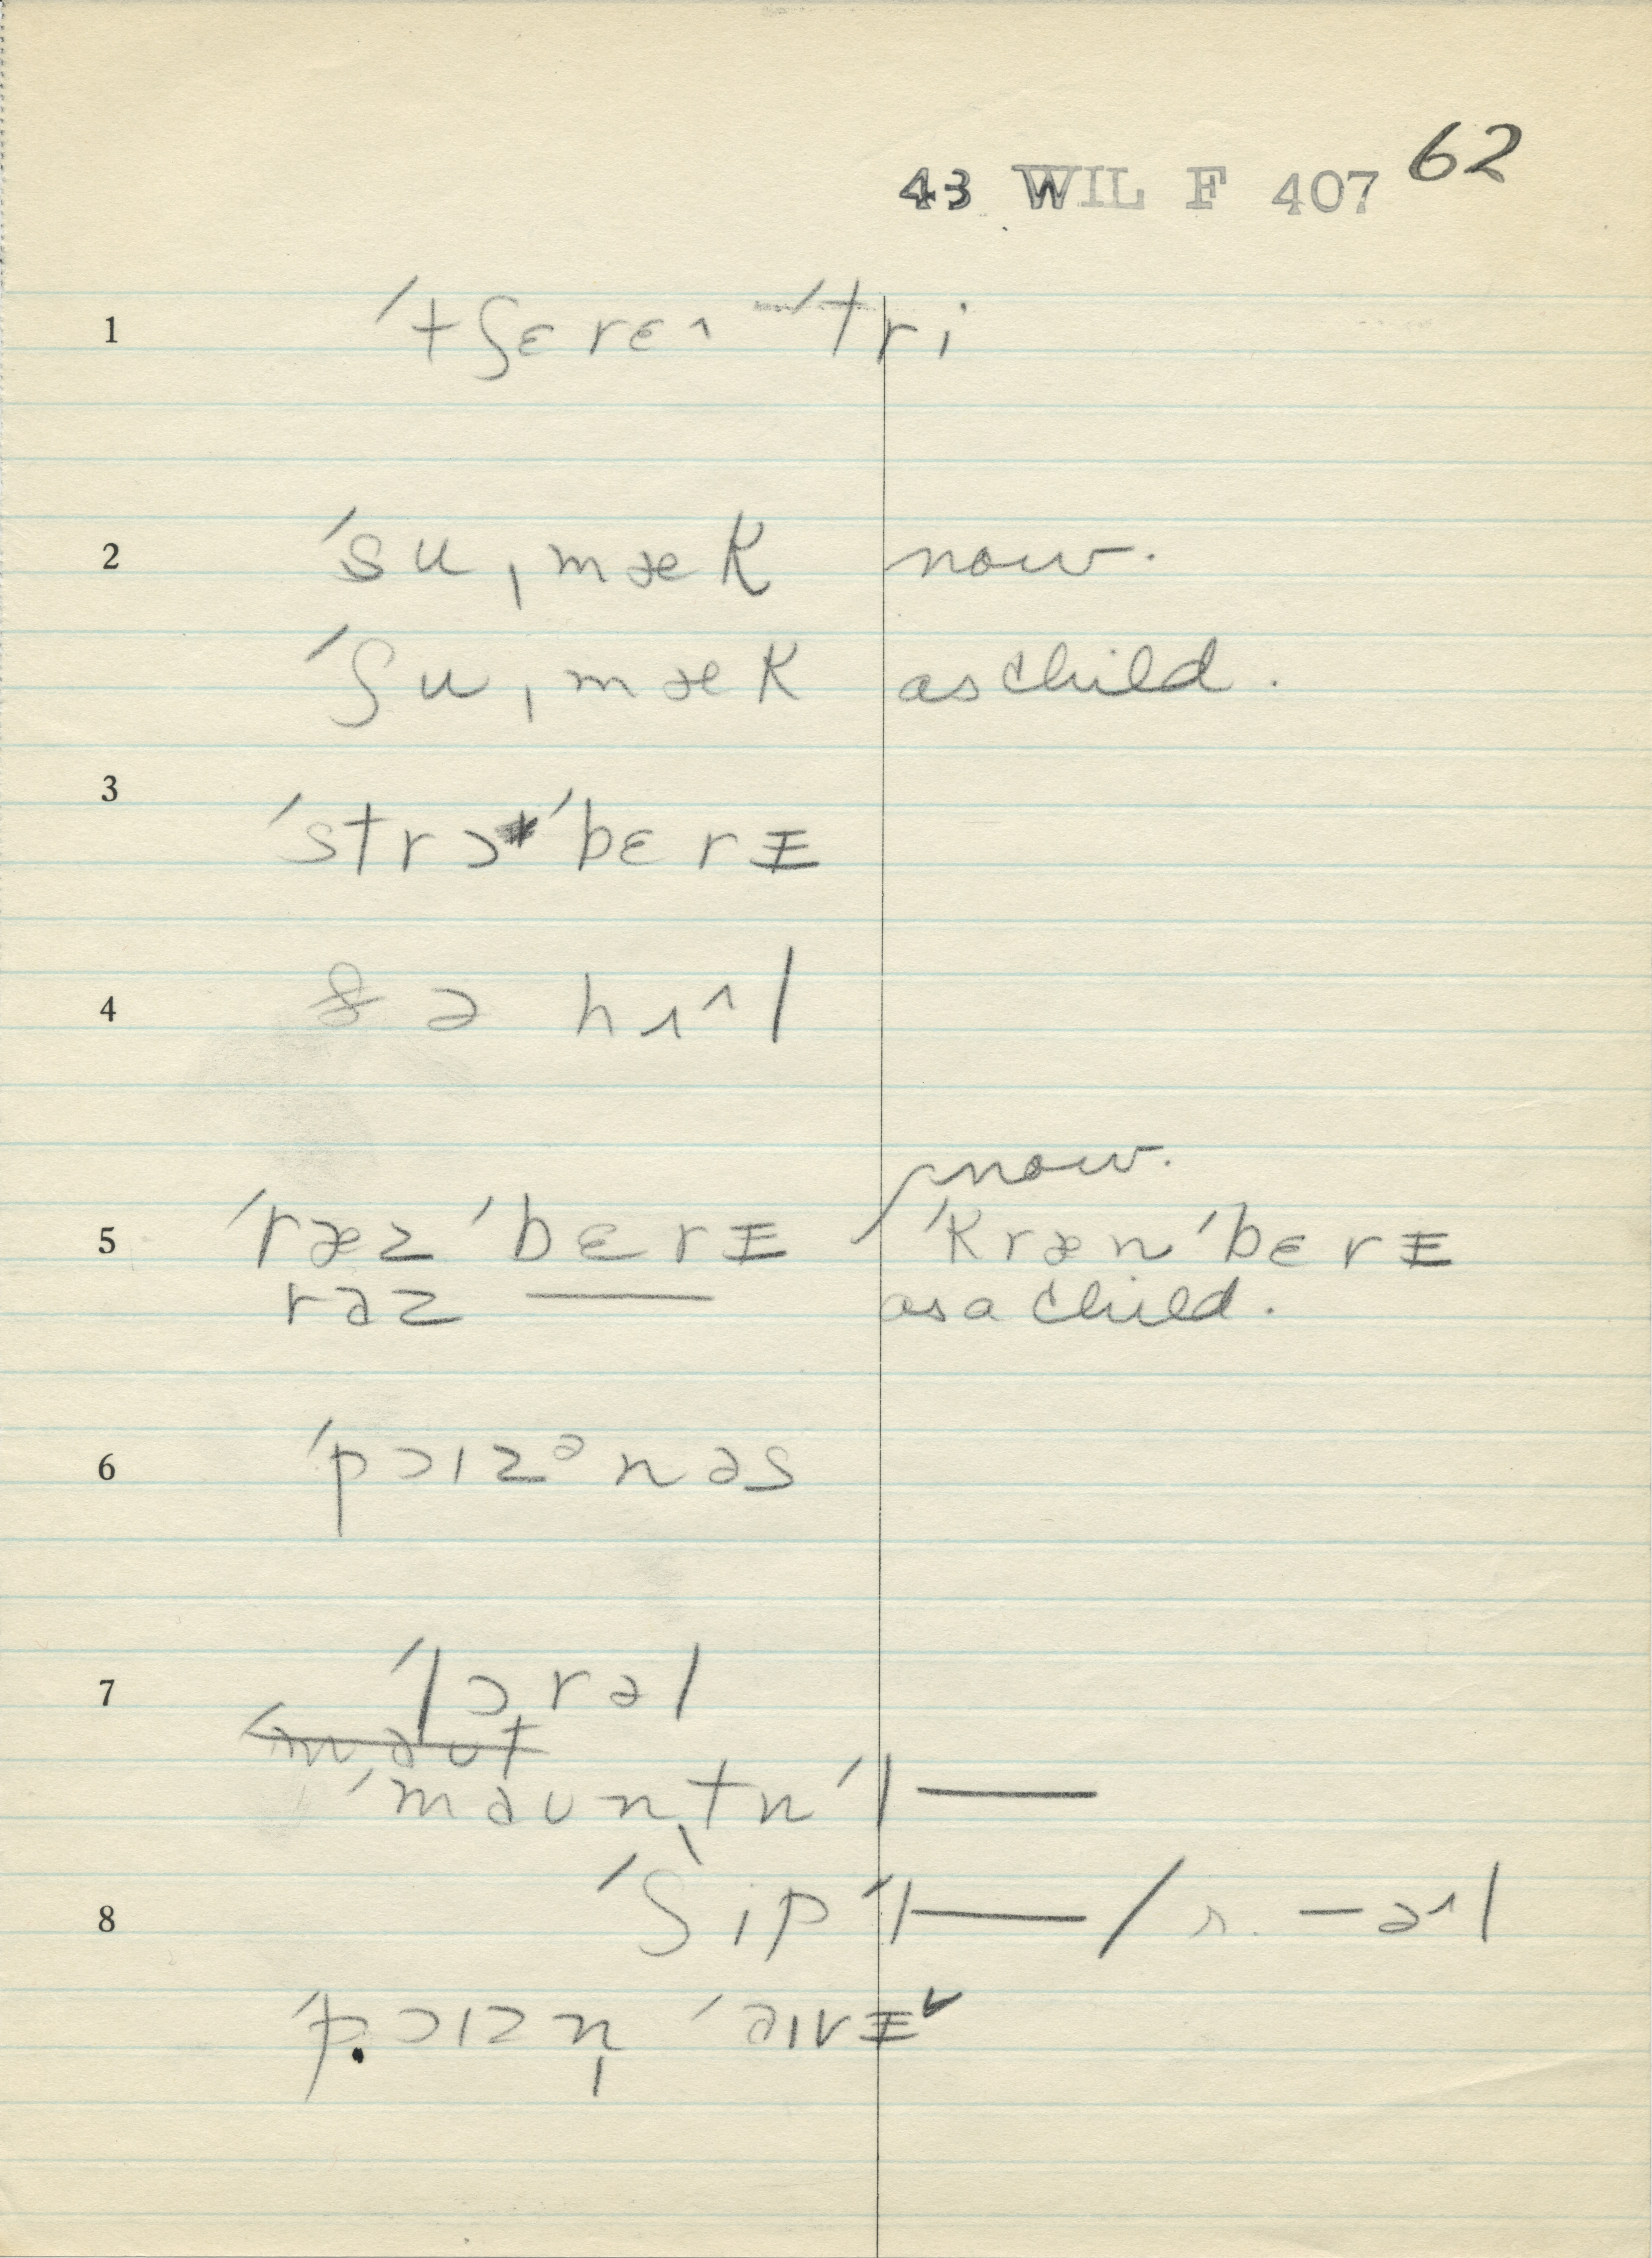 43 WIL F 407 62
1 ˈtʃɛrɛ˄ ˈtri
2 ˈsuˌmæk now.
ˈʃuˌmæk as child.
3 ˈstrɔˈbɛrɪ
4 ðə hɪ˄l
now.
5 ˈræzˈbɛrɪ ˈkrænˈbɛrɪ
rəz —— as a child.
6 ˈpɔɪzᵊnəs
7 ˈlɔrəl
ˈməʊntn̩ ˈl——
8 ˈʃipˈl—— / r. —ə˄l
ˈpɔɪzn̩ ˈaɪvɪ˅